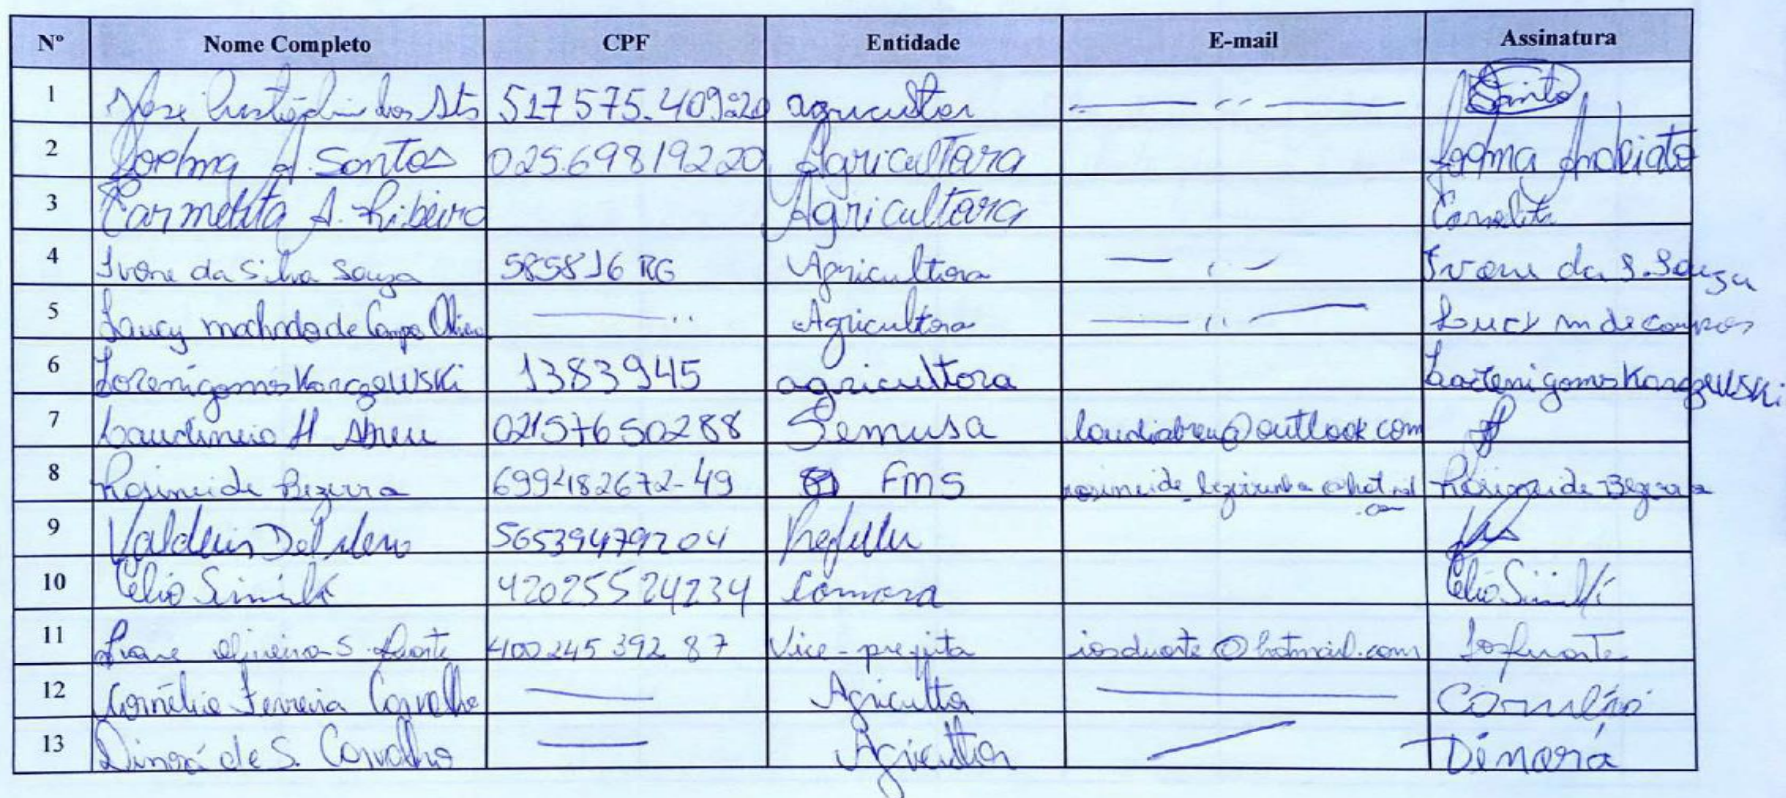 Nº Nome Completo CPF Entidade E-mail Assinatura
1 Jose Custódio dos Sts 517575.409=20 agricultor Santo
2 Joelma A Santos 025.69819220 Agricultara
3 Carmelita A. Ribeiro Agricultora Carmelita
4 Ivone da Silva Souza 585816 RG Agricultora Ivone da S. Souza
5 machado de Campo Agricultora Lucy m de campos
6 Loreni gomes Karczewski 1383945 agricultora gomes Karczewski
7 Laudineio H Abreu 02157650288 Semusa laudiabreu@outlook.com
8 Rosineide Bezerra 699482672-49 FMS Rosineide Bezerra
9 56539479204
10 Célio 42025524234 Camara Célio
11 Oliveira S. Duarte 400245392 87 Vice-prefeita iosduarte@hotmail.com
12 Cornélio Ferreira Carvalho Agricultor Cornélio
13 Dinorá de S. Carvalho Agricultor Dinorá